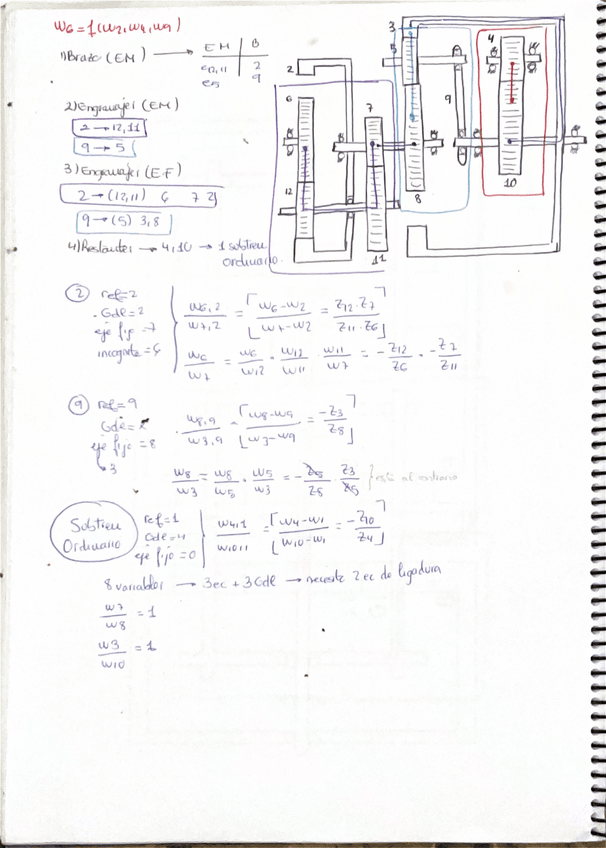 W6 = f(w2, w4, w9)
1) Brazo (EM) → EM | B
e12,11 | 2
e5 | 9
2) Engranajes (EM)
2 → 12,11
9 → 5
3) Engranajes (EF)
2 → (12,11) 6 7 2
9 → (5) 3,8
4) Restantes → 4,10 → 1 subtren
ordinario.
2
6
12
7
11
3
5
8
9
4
10
② ref=2
Gdl=2
eje fijo=7
incognita=6
w6,2/w7,2 = [w6-w2/w7-w2 = Z12·Z7/Z11·Z6]
w6/w7 = w6/w12 · w12/w11 · w11/w7 = -Z12/Z6 · -Z7/Z11
⑨ ref=9
Gdl=2
eje fijo=8
↳3
w8,9/w3,9 = [w8-w9/w3-w9 = -Z3/Z8]
w8/w3 = w8/w5 · w5/w3 = -Z5/Z8 · Z3/Z5 } está al
Subtren
Ordinario
ref=1
Gdl=4
eje fijo=0
w4,1/w10,1 = [w4-w1/w10-w1 = -Z10/Z4]
8 variables → 3ec + 3Gdl → necesito 2 ec de ligadura
w7/w8 = 1
w3/w10 = 1